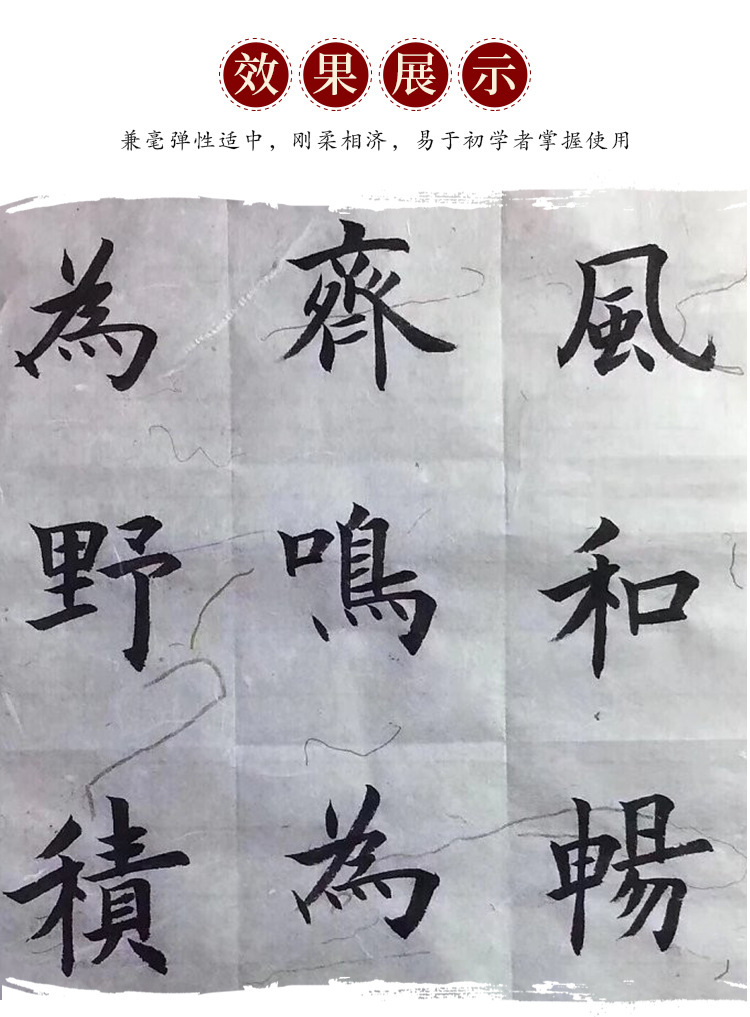 效果展示
兼毫弹性适中，刚柔相济，易于初学者掌握使用
風和暢
齊鳴為
為野積